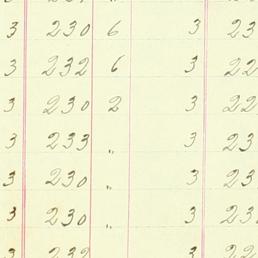 3 230 6 3 23
3 232 6 3 22
3 230 2 3 22
3 233 " 3 23
3 230 " 3 23
3 230 " 3 23
3 232 3 22